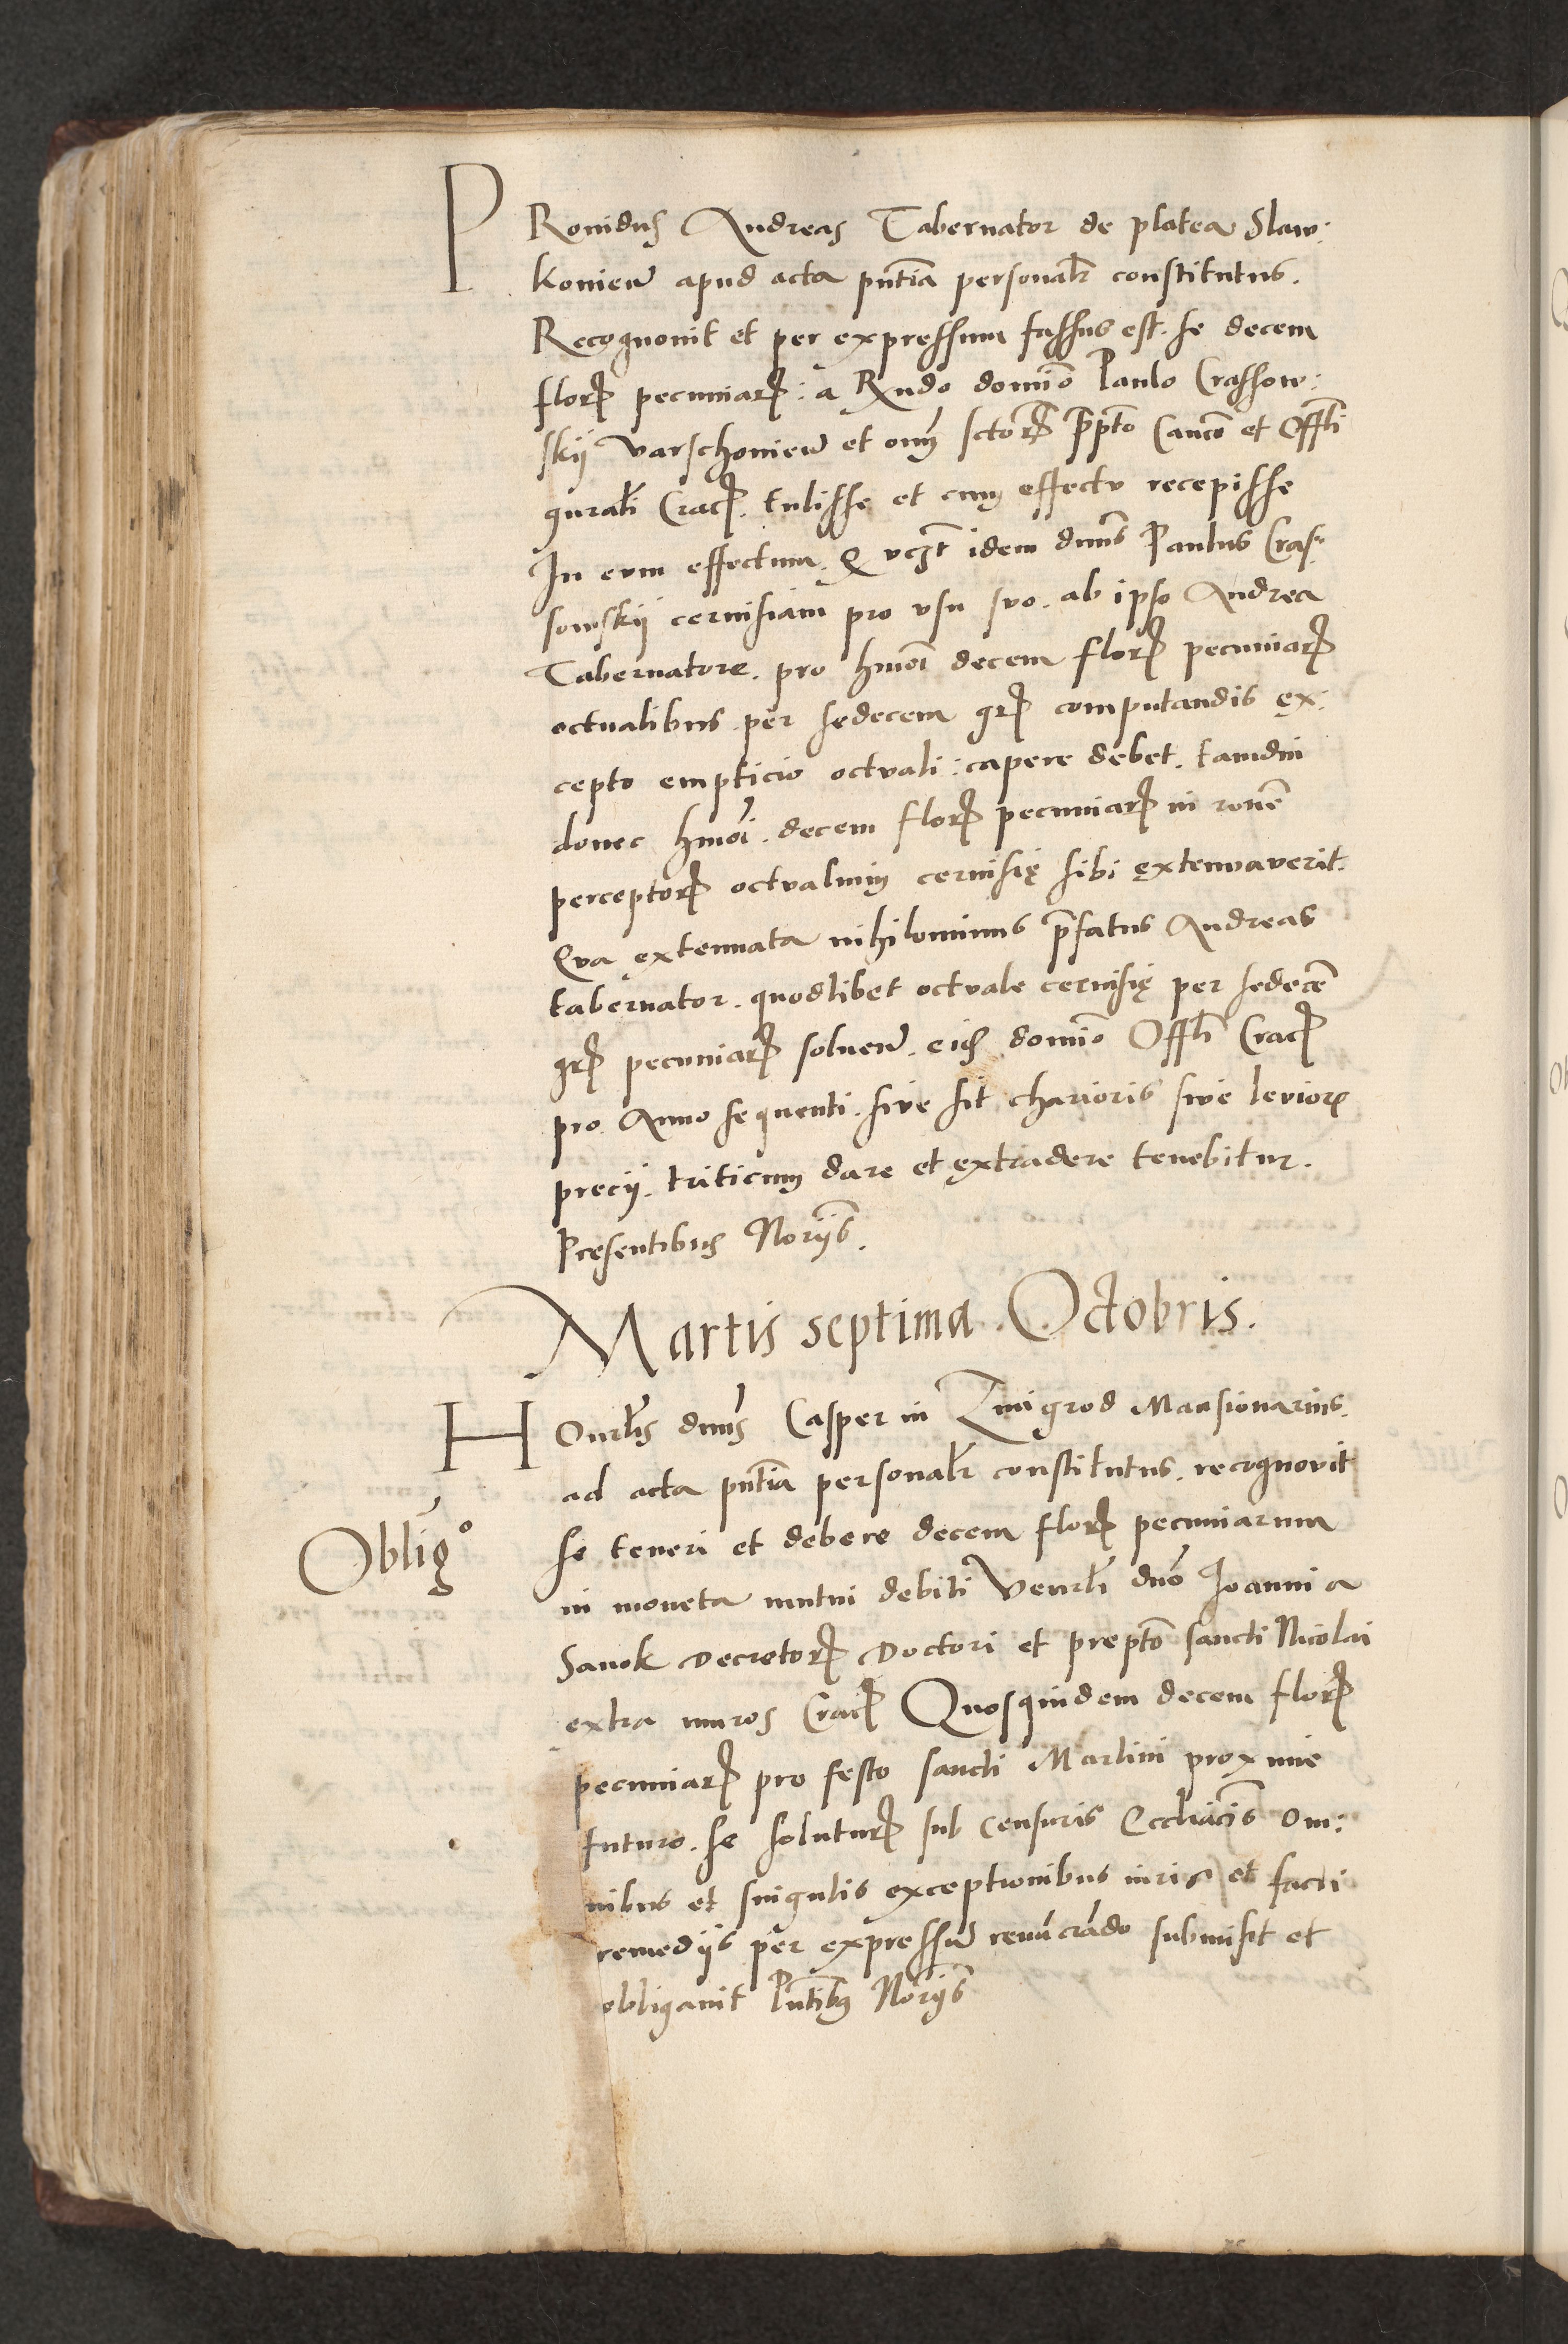 PRouidus Andreas Tabernator de platea Slaw:
kouien̄ apud acta pn̄tia personal̄r constitutus.
Recognouit et per expressum fassus est. se decem
floꝝ pecuniaꝝ: a Rn̄do domīo Paulo Crassow:
skij varschouien̄ et om̄ sctoꝝ p̄pto Canc̄o et Offl̄i
gn̄ral̄i Crac̄. tulisse et cum effectu recepisse
In eum effectum. ꝙ vcꝫt idem dn̄us Paulus Cras:
sowskij ceruisiam pro vsu suo. ab ipso Andrea
Tabernatore. pro hmōi decem floꝝ pecuniaꝝ
octualibus per sedecem gr̄ computandis ex:
cepto empticio octuali: capere debet. tamdiu
donec hmōi. decem floꝝ pecuniaꝝ in rōnē
perceptoꝝ octualium ceruisię sibi extenuauerit.
Qua extenuata nihilominus p̄fatus Andreas
tabernator. quodlibet octuale ceruisię per sedecē
gr̄ pecuniaꝝ soluen̄. eidē domīo Offl̄i Crac̄
pro Anno sequenti. siue sit charioris siue leuioꝝ
precij. triticum dare et extradere tenebitur.
Presentibus Norijs̄.
Martis septima. Octobris.
HOnrl̄is dn̄us Casper in Zmigrod Mansionarius.
ad acta pn̄tia personal̄r constitutus. recognouit
Oblig°
se teneri et debere decem floꝝ pecuniarum
in moneta mutui debiti Venrl̄i dn̄o Ioanni a
Sanok Decretoꝝ Doctori et prepto sancti Nicolai
extra muros Crac̄ Quosquidem decem floꝝ
pecuniaꝝ pro festo sancti Martini proxime
futuro. se soluturꝝ sub Censuris Eccl̄iacis om:
nibus et singulis exceptionibus iuris et facti
remedijs per expressū renūciādo submisit et
obligauit Pn̄tibus Norijs̄